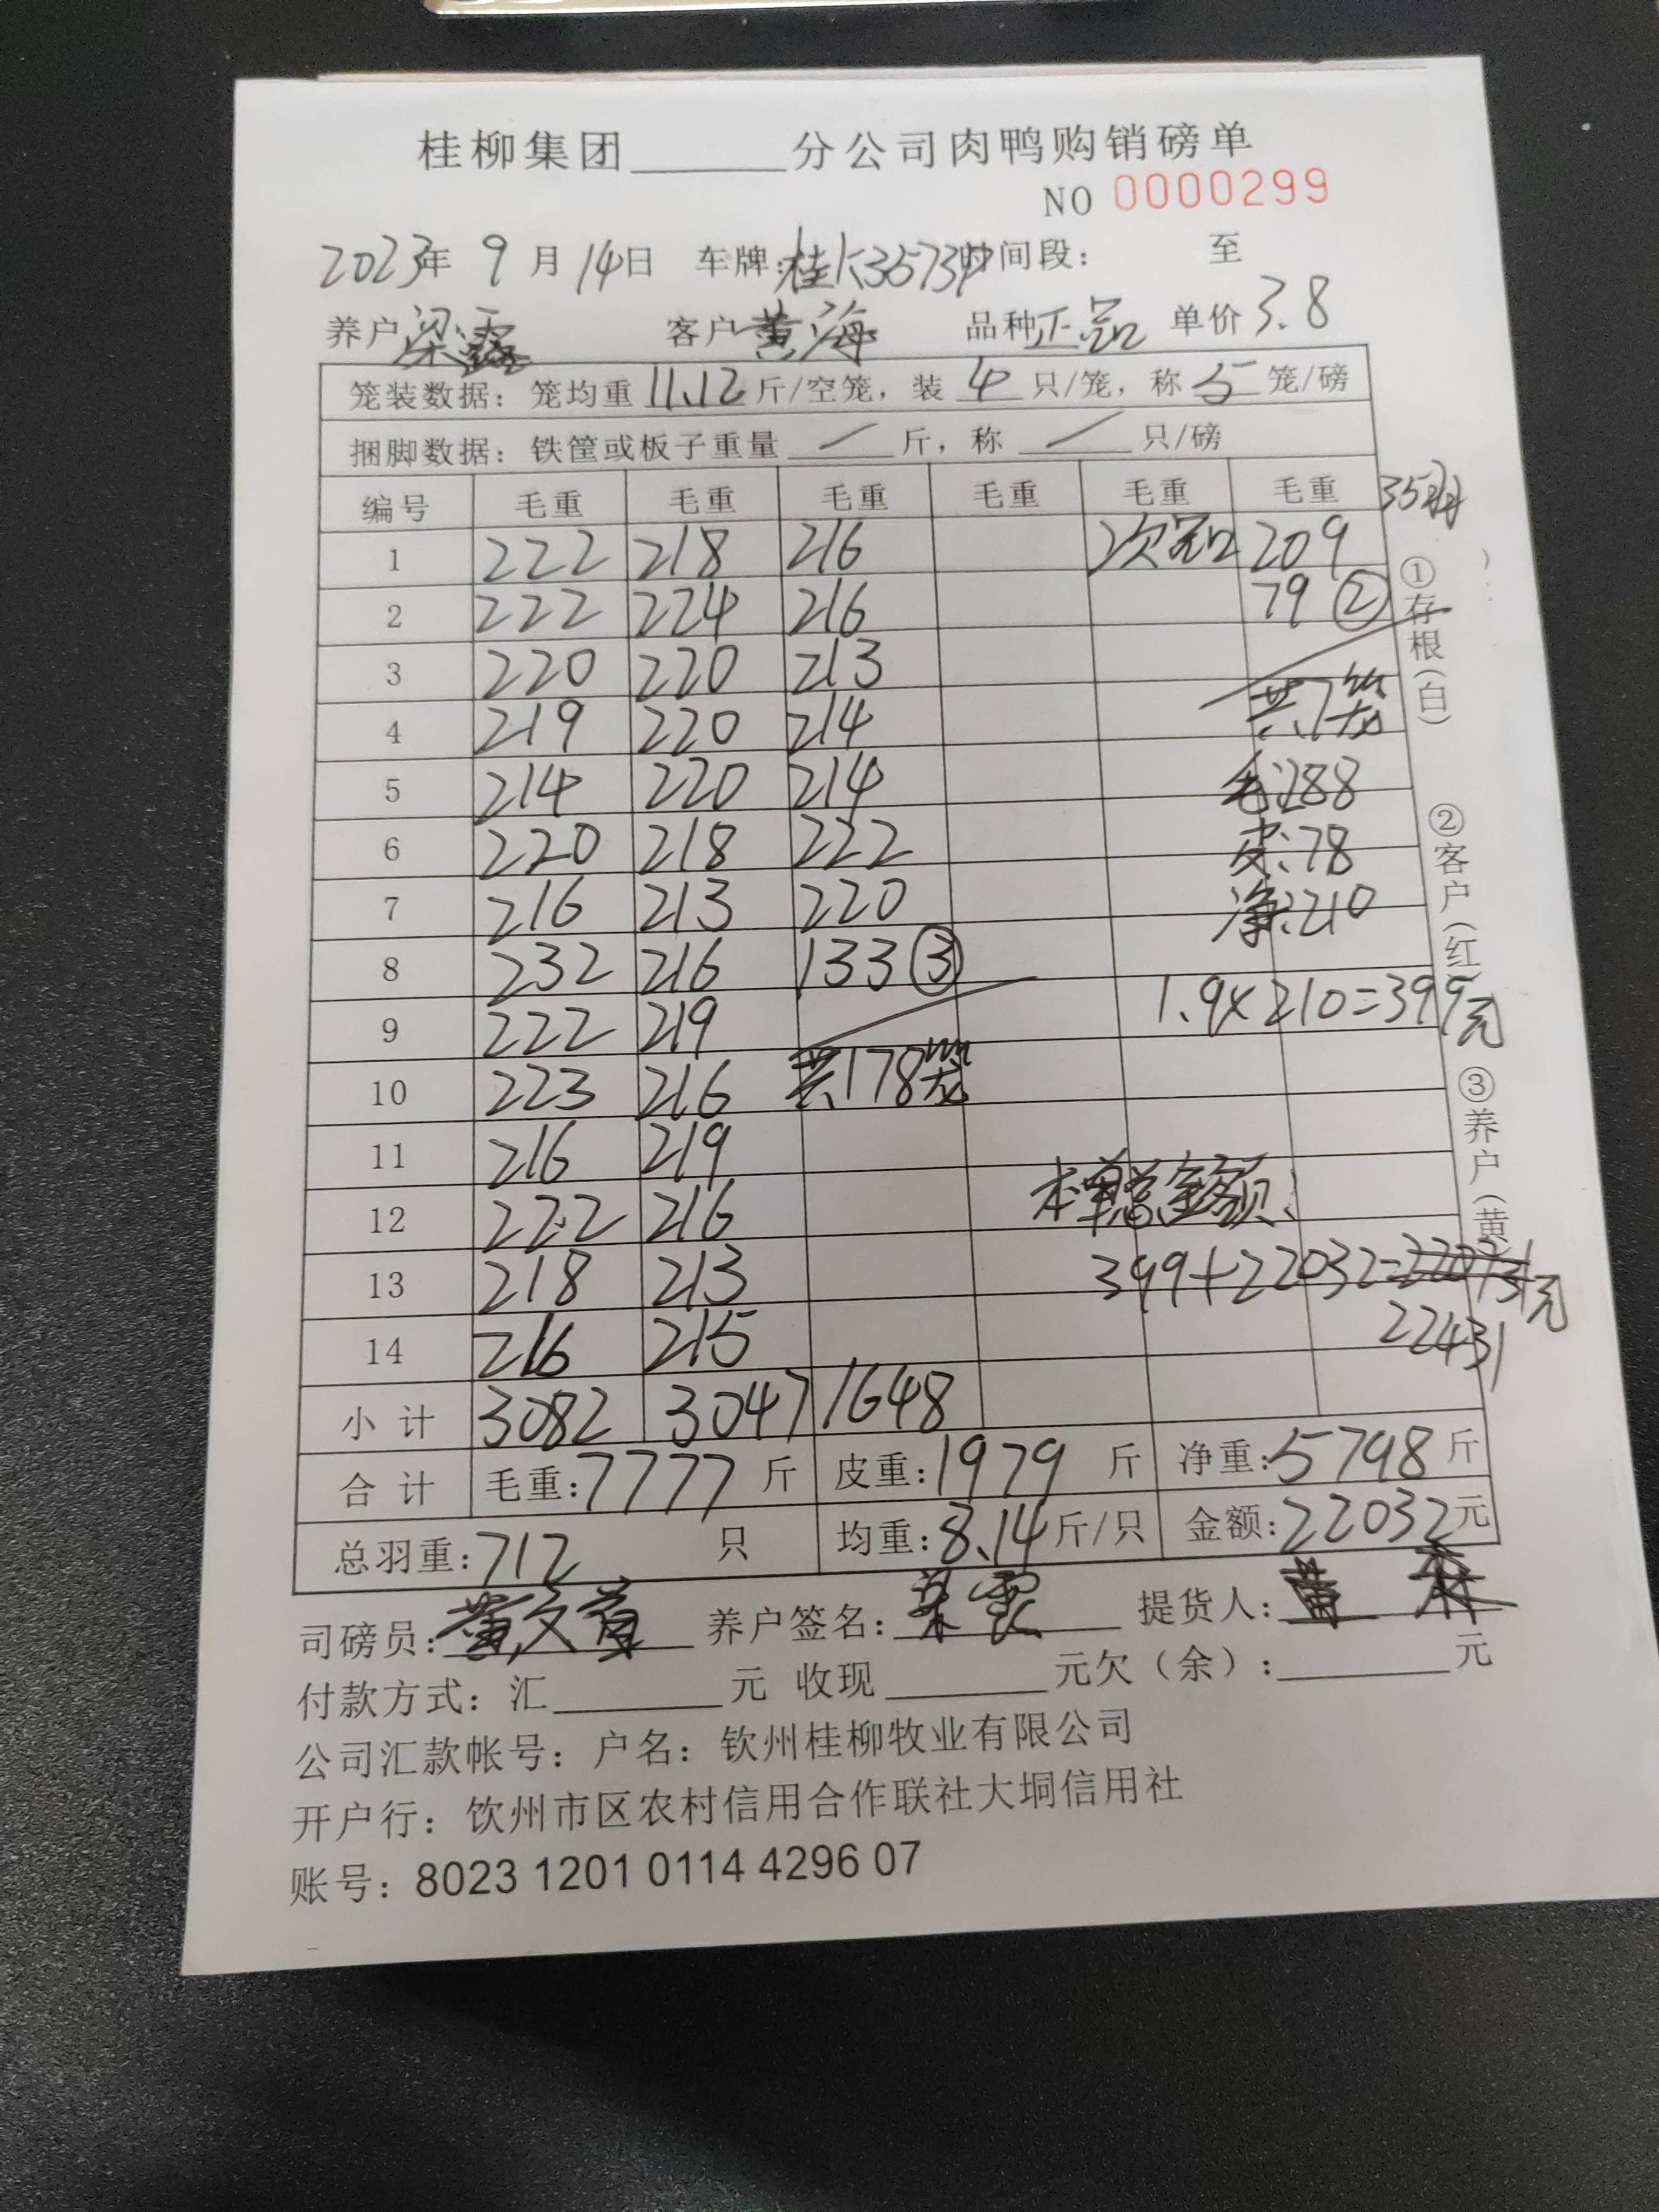 桂柳集团______分公司肉鸭购销磅单
NO 0000299
2023年 9 月 14日 车牌:桂K35739 时间段: 至
养户 梁 客户 黄海 品种 正品 单价 3.8
笼装数据: 笼均重 11.12 斤/空笼, 装 4 只/笼, 称 5 笼/磅
捆脚数据: 铁筐或板子重量 / 斤, 称 / 只/磅
编号 毛重 毛重 毛重 毛重 毛重 毛重 35
1 222 218 216 次品 209
2 222 224 216 79 ②
3 220 220 213
4 219 220 214 共7笼
5 214 220 214 毛:288
6 220 218 222 皮:78
7 216 213 220 净:210
8 232 216 133 ③
9 222 219 1.9×210=399元
10 223 216 共178笼
11 216 219
12 222 216 本单总金额:
13 218 213 399+22032= 元
14 216 215 22431
小计 3082 3047 1648
合计 毛重:7777 斤 皮重:1979 斤 净重:5798 斤
总羽重:712 只 均重:8.14斤/只 金额:22032元
司磅员: 黄文 养户签名: 梁 提货人: 黄
付款方式: 汇______元 收现______元欠(余):______元
公司汇款帐号: 户名: 钦州桂柳牧业有限公司
开户行: 钦州市区农村信用合作联社大垌信用社
账号: 8023 1201 0114 4296 07
①存根(白) ②客户(红) ③养户(黄